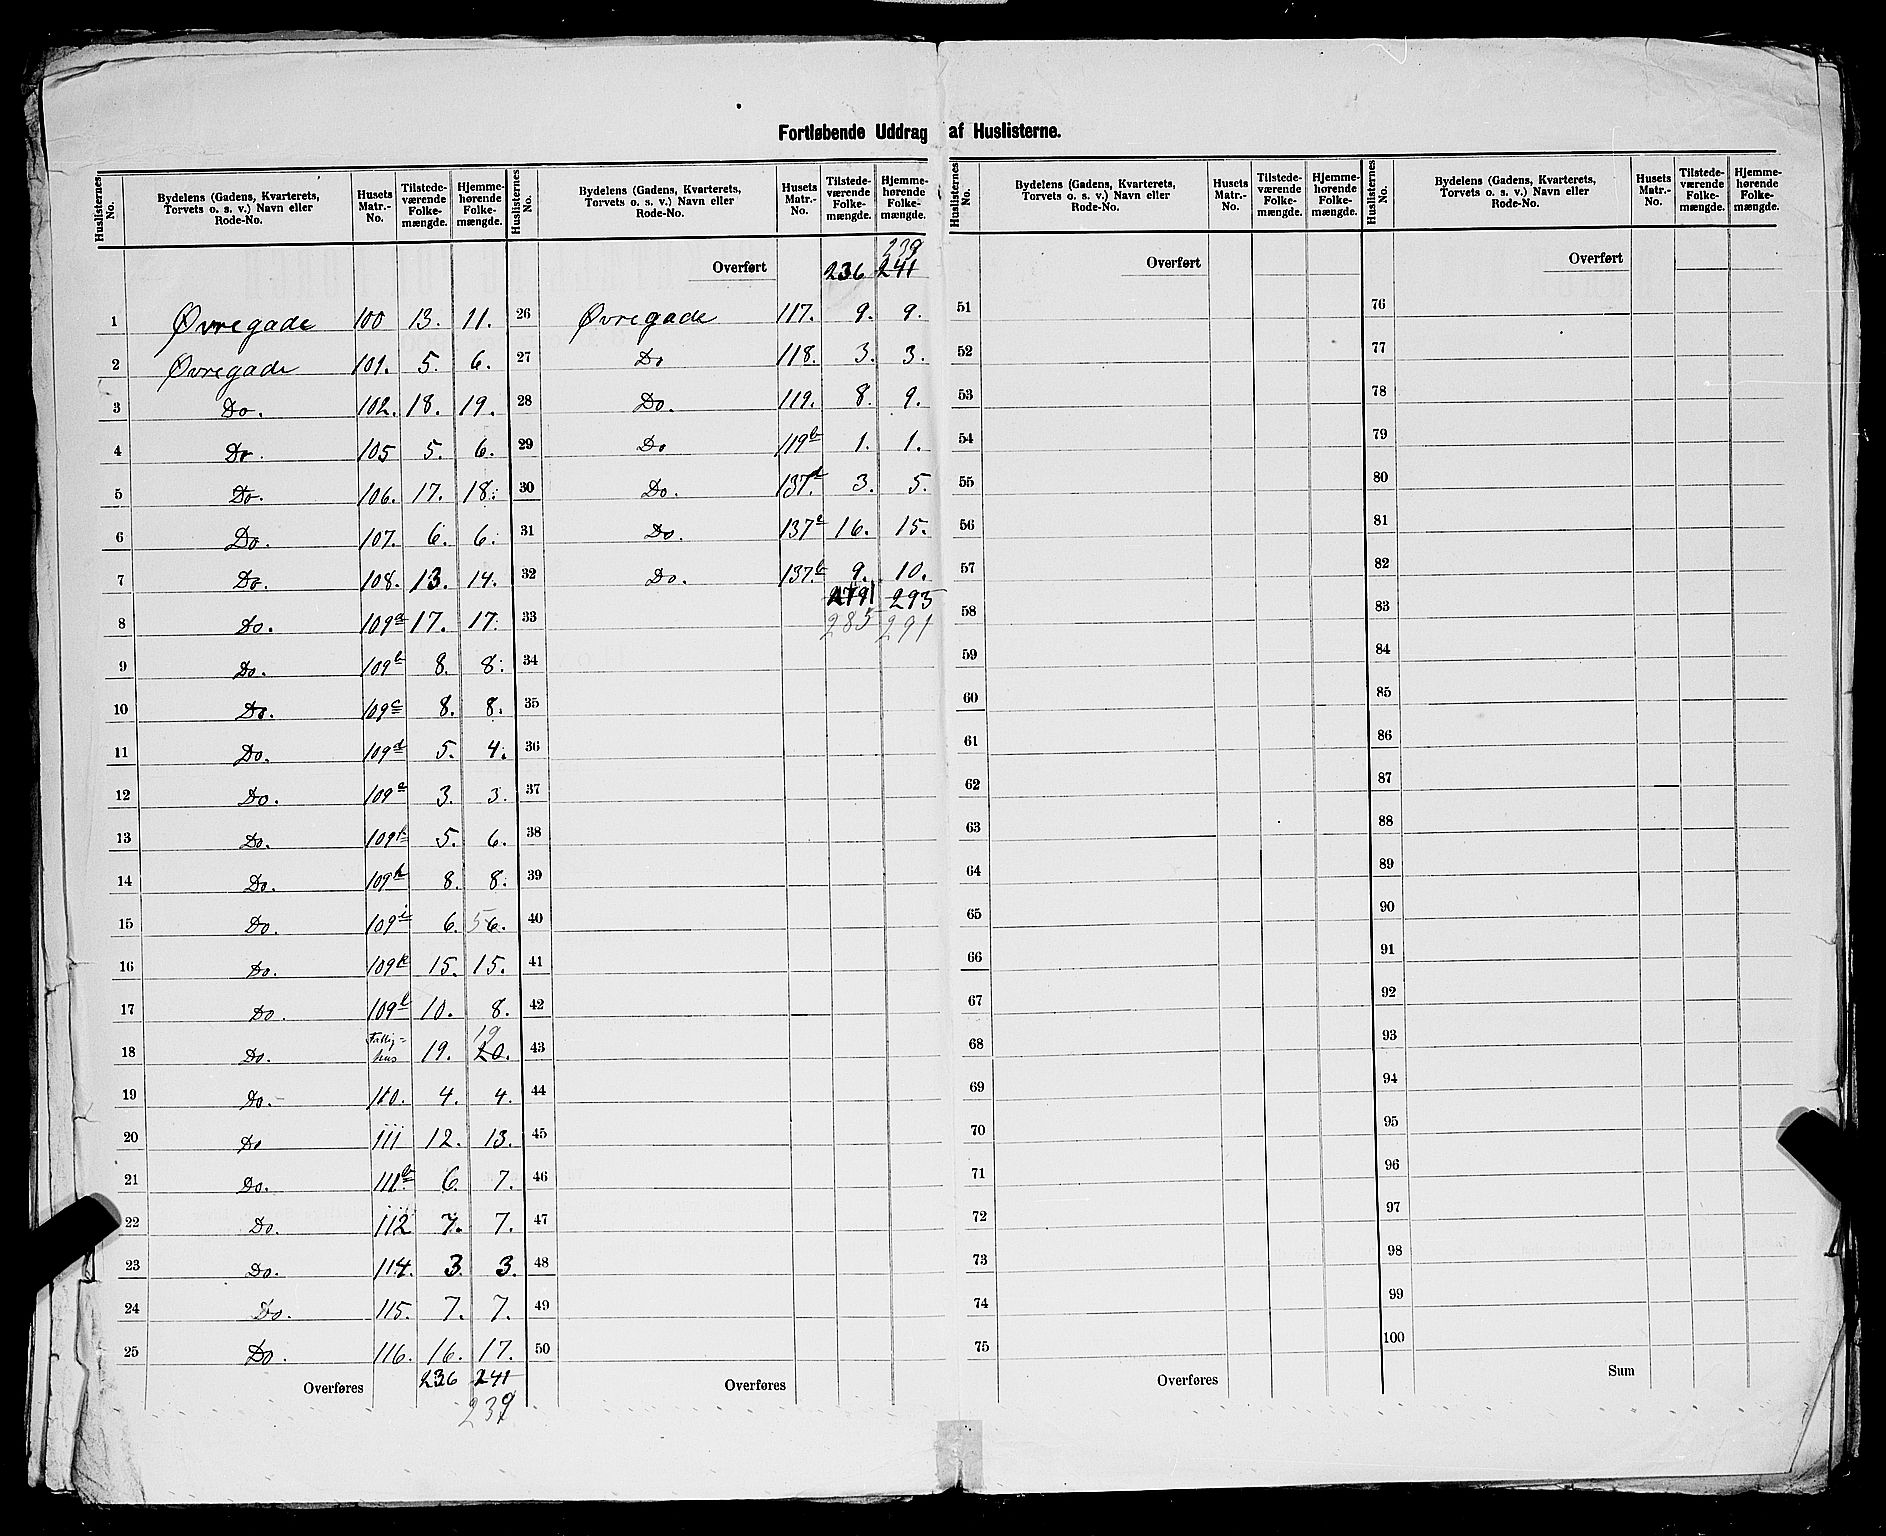 Fortløbende Uddrag af Huslisterne.
Huslisternes No. | Bydelens (Gadens, Kvarterets, Torvets o. s. v.) Navn eller Rode-No. | Husets Matr.-No. | Tilstedeværende Folkemængde. | Hjemmehørende Folkemængde.
1 Øvregade 100 13. 11.
2 Øvregade 101. 5. 6.
3 Do. 102. 18. 19.
4 Do. 105 5. 6.
5 Do. 106. 17. 18.
6 Do. 107. 6. 6.
7 Do. 108. 13. 14.
8 Do. 109a 17. 17.
9 Do. 109b 8. 8.
10 Do. 109c 8. 8.
11 Do. 109d 5. 4.
12 Do. 109e 3. 3.
13 Do. 109f 5. 6.
14 Do. 109h 8. 8.
15 Do. 109i 6. 5 6.
16 Do. 109k 15. 15.
17 Do. 109l 10. 8.
18 Do. Fattig=hus 19. 19 20.
19 Do. 110. 4. 4.
20 Do 111 12. 13.
21 Do. 111b 6. 7.
22 Do. 112 7. 7.
23 Do. 114. 3. 3.
24 Do. 115. 7. 7.
25 Do. 116. 16. 17.
Overføres 236 241
239
Huslisternes No. | Bydelens (Gadens, Kvarterets, Torvets o. s. v.) Navn eller Rode-No. | Husets Matr.-No. | Tilstedeværende Folkemængde. | Hjemmehørende Folkemængde.
239
Overført 236 241
26 Øvregade 117. 9. 9.
27 Do 118. 3. 3.
28 Do. 119. 8. 9.
29 Do 119b 1. 1.
30 Do. 137d 3. 5.
31 Do. 137e 16. 15.
32 Do. 137b 9. 10.
293
33 285 291
34
35
36
37
38
39
40
41
42
43
44
45
46
47
48
49
50
Overføres
Huslisternes No. | Bydelens (Gadens, Kvarterets, Torvets o. s. v.) Navn eller Rode-No. | Husets Matr.-No. | Tilstedeværende Folkemængde. | Hjemmehørende Folkemængde.
Overført
51
52
53
54
55
56
57
58
59
60
61
62
63
64
65
66
67
68
69
70
71
72
73
74
75
Overføres
Huslisternes No. | Bydelens (Gadens, Kvarterets, Torvets o. s. v.) Navn eller Rode-No. | Husets Matr.-No. | Tilstedeværende Folkemængde. | Hjemmehørende Folkemængde.
Overført
76
77
78
79
80
81
82
83
84
85
86
87
88
89
90
91
92
93
94
95
96
97
98
99
100
Sum